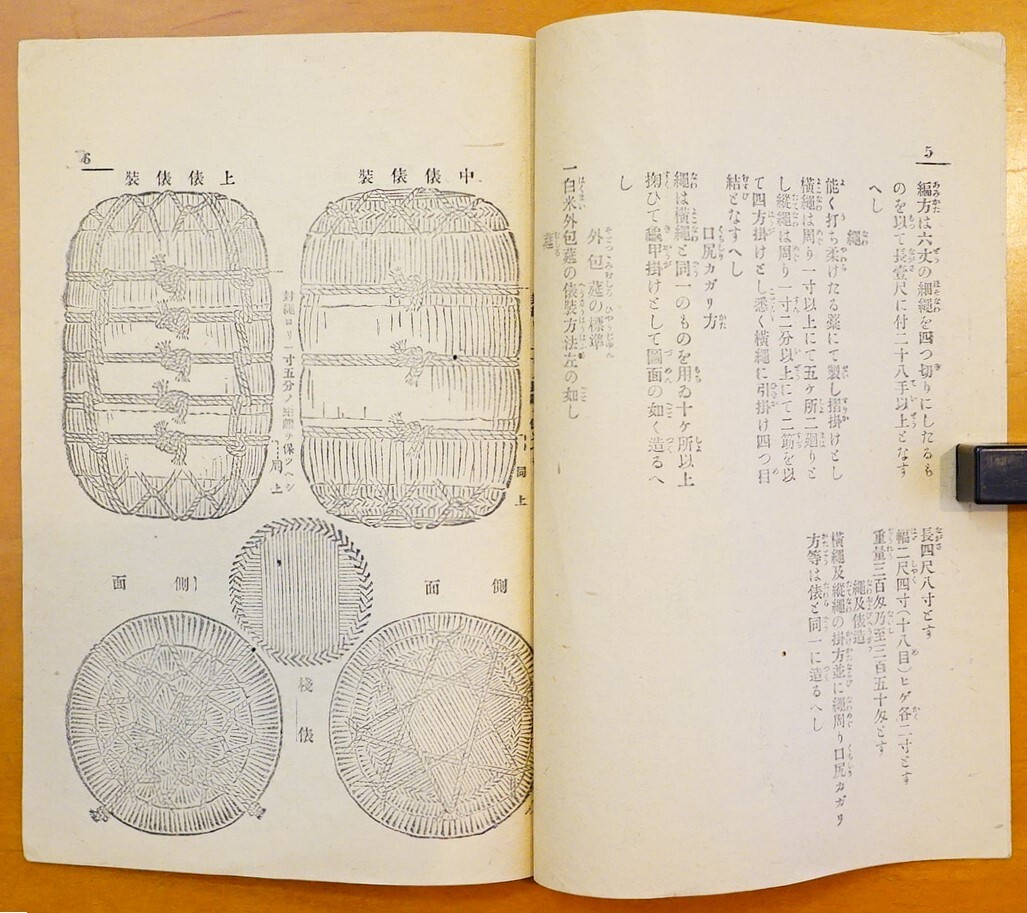 5
編方は六丈の細繩を四つ切りにしたるも
のを以て長壹尺に付二十八手以上となす
へし
繩
能く打ち柔けたる藁にて製し摺掛けとし
橫繩は周り一寸以上にて五ケ所二廻りと
し縱繩は周り一寸二分以上にて二筋を以
て四方掛けとし悉く橫繩に引掛け四つ目
結となすへし
口尻カガリ方
繩は橫繩と同一のものを用ゐ十ケ所以上
掬ひて龜甲掛けとして圖面の如く造るへ
し
外包莚の標準
一白米外包莚の俵裝方法左の如し
莚
長四尺八寸とす
幅二尺四寸(十八目)ヒゲ各二寸とす
重量三百匁乃至三百五十匁とす
繩及俵造
橫繩及縱繩の掛方並に繩周り口尻カガリ
方等は俵と同一に造るへし
6
中俵俵裝
同上
側面
上俵俵裝
封繩ロリ一寸五分ノ
ヲ保ツヘシ
同上
側面
棧俵